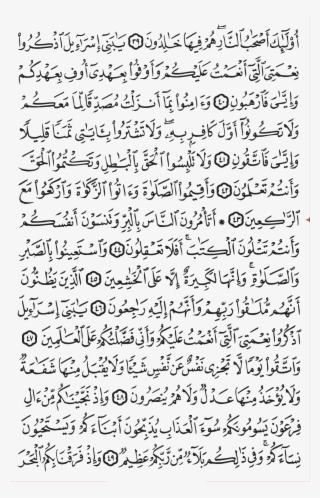 أُوْلَٰٓئِكَ أَصۡحَٰبُ ٱلنَّارِۖ هُمۡ فِيهَا خَٰلِدُونَ ٣٩ يَٰبَنِيٓ إِسۡرَٰٓءِيلَ ٱذۡكُرُواْ
نِعۡمَتِيَ ٱلَّتِيٓ أَنۡعَمۡتُ عَلَيۡكُمۡ وَأَوۡفُواْ بِعَهۡدِيٓ أُوفِ بِعَهۡدِكُمۡ
وَإِيَّٰيَ فَٱرۡهَبُونِ ٤٠ وَءَامِنُواْ بِمَآ أَنزَلۡتُ مُصَدِّقٗا لِّمَا مَعَكُمۡ
وَلَا تَكُونُوٓاْ أَوَّلَ كَافِرِۭ بِهِۦۖ وَلَا تَشۡتَرُواْ بِـَٔايَٰتِي ثَمَنٗا قَلِيلٗا
وَإِيَّٰيَ فَٱتَّقُونِ ٤١ وَلَا تَلۡبِسُواْ ٱلۡحَقَّ بِٱلۡبَٰطِلِ وَتَكۡتُمُواْ ٱلۡحَقَّ
وَأَنتُمۡ تَعۡلَمُونَ ٤٢ وَأَقِيمُواْ ٱلصَّلَوٰةَ وَءَاتُواْ ٱلزَّكَوٰةَ وَٱرۡكَعُواْ مَعَ
ٱلرَّٰكِعِينَ ٤٣ ۞ أَتَأۡمُرُونَ ٱلنَّاسَ بِٱلۡبِرِّ وَتَنسَوۡنَ أَنفُسَكُمۡ
وَأَنتُمۡ تَتۡلُونَ ٱلۡكِتَٰبَۚ أَفَلَا تَعۡقِلُونَ ٤٤ وَٱسۡتَعِينُواْ بِٱلصَّبۡرِ
وَٱلصَّلَوٰةِۚ وَإِنَّهَا لَكَبِيرَةٌ إِلَّا عَلَى ٱلۡخَٰشِعِينَ ٤٥ ٱلَّذِينَ يَظُنُّونَ
أَنَّهُم مُّلَٰقُواْ رَبِّهِمۡ وَأَنَّهُمۡ إِلَيۡهِ رَٰجِعُونَ ٤٦ يَٰبَنِيٓ إِسۡرَٰٓءِيلَ
ٱذۡكُرُواْ نِعۡمَتِيَ ٱلَّتِيٓ أَنۡعَمۡتُ عَلَيۡكُمۡ وَأَنِّي فَضَّلۡتُكُمۡ عَلَى ٱلۡعَٰلَمِينَ ٤٧
وَٱتَّقُواْ يَوۡمٗا لَّا تَجۡزِي نَفۡسٌ عَن نَّفۡسٖ شَيۡـٔٗا وَلَا يُقۡبَلُ مِنۡهَا شَفَٰعَةٞ
وَلَا يُؤۡخَذُ مِنۡهَا عَدۡلٞ وَلَا هُمۡ يُنصَرُونَ ٤٨ وَإِذۡ نَجَّيۡنَٰكُم مِّنۡ ءَالِ
فِرۡعَوۡنَ يَسُومُونَكُمۡ سُوٓءَ ٱلۡعَذَابِ يُذَبِّحُونَ أَبۡنَآءَكُمۡ وَيَسۡتَحۡيُونَ
نِسَآءَكُمۡۚ وَفِي ذَٰلِكُم بَلَآءٞ مِّن رَّبِّكُمۡ عَظِيمٞ ٤٩ وَإِذۡ فَرَقۡنَا بِكُمُ ٱلۡبَحۡرَ